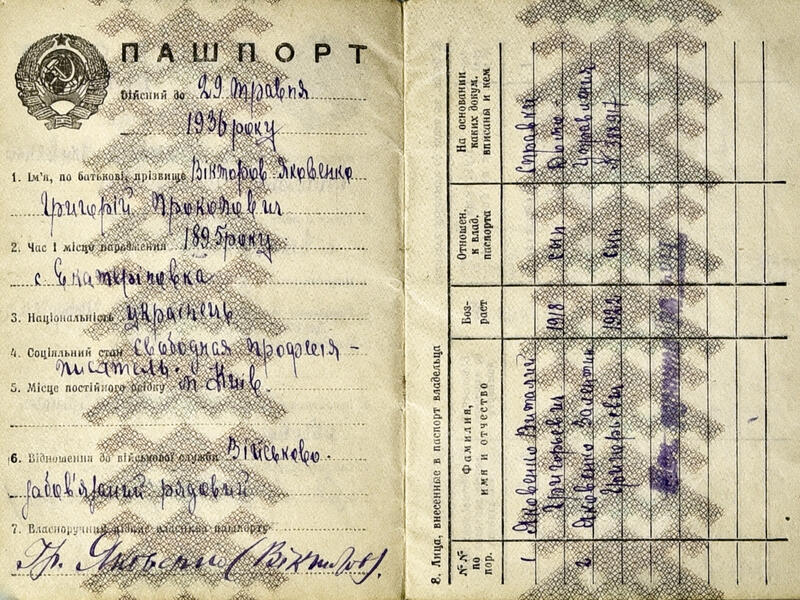 ПАШПОРТ
Дійсний до 29 травня
1936 року
1. Ім'я, по батькові, прізвище Вікторов Яковенко
Григорій Прокопович
2. Час і місце народження 1895 року
с. Екатериновка
3. Національність українець
4. Соціяльний стан свободная професія –
писатель.
5. Місце постійного осідку м. Київ.
6. Відношення до військової служби Військово-
забов'язаний рядовий
7. Власноручний підпис власника пашпорту
Гр. Яковенко (Вікторов).
8. Лица, внесенные в паспорт владельца
№№ по пор.
Фамилия, имя и отчество
Воз-раст
Отношен. к влад. паспорта
На основании каких докум. вписаны и кем
1 Яковенко Виталий 1918 сын Справки
Григорьевич
2 Яковенко Валентин 1922 сын Управления
Григорьевич